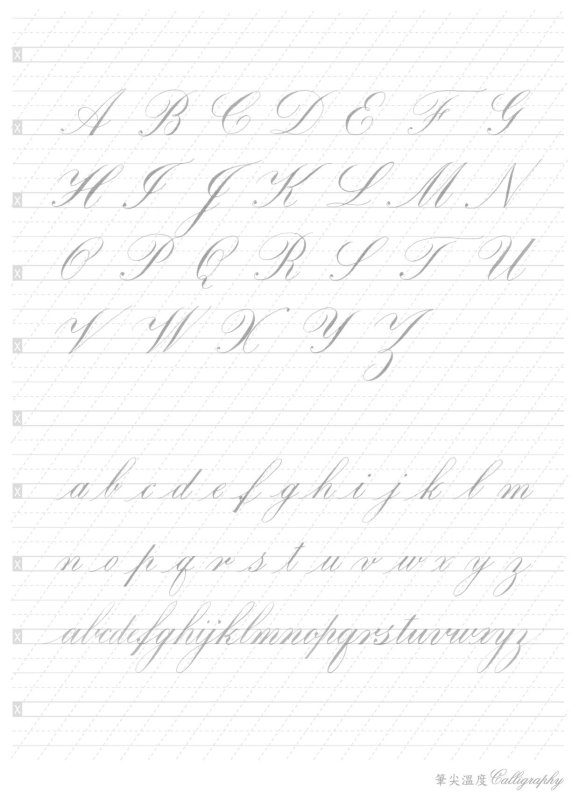 x
x
A B C D E F G
x
H I J K L M N
x
O P Q R S T U
x
V W X Y Z
x
x
a b c d e f g h i j k l m
x
n o p q r s t u v w x y z
x
abcdefghijklmnopqrstuvwxyz
x
筆尖溫度Calligraphy